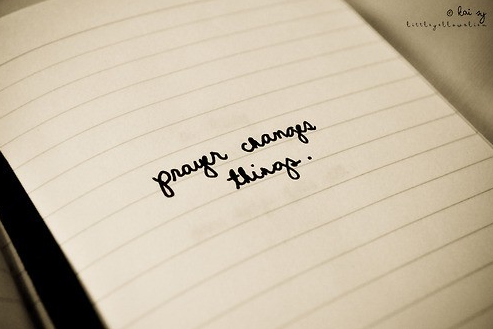 © kai sy
prayer changes
things.